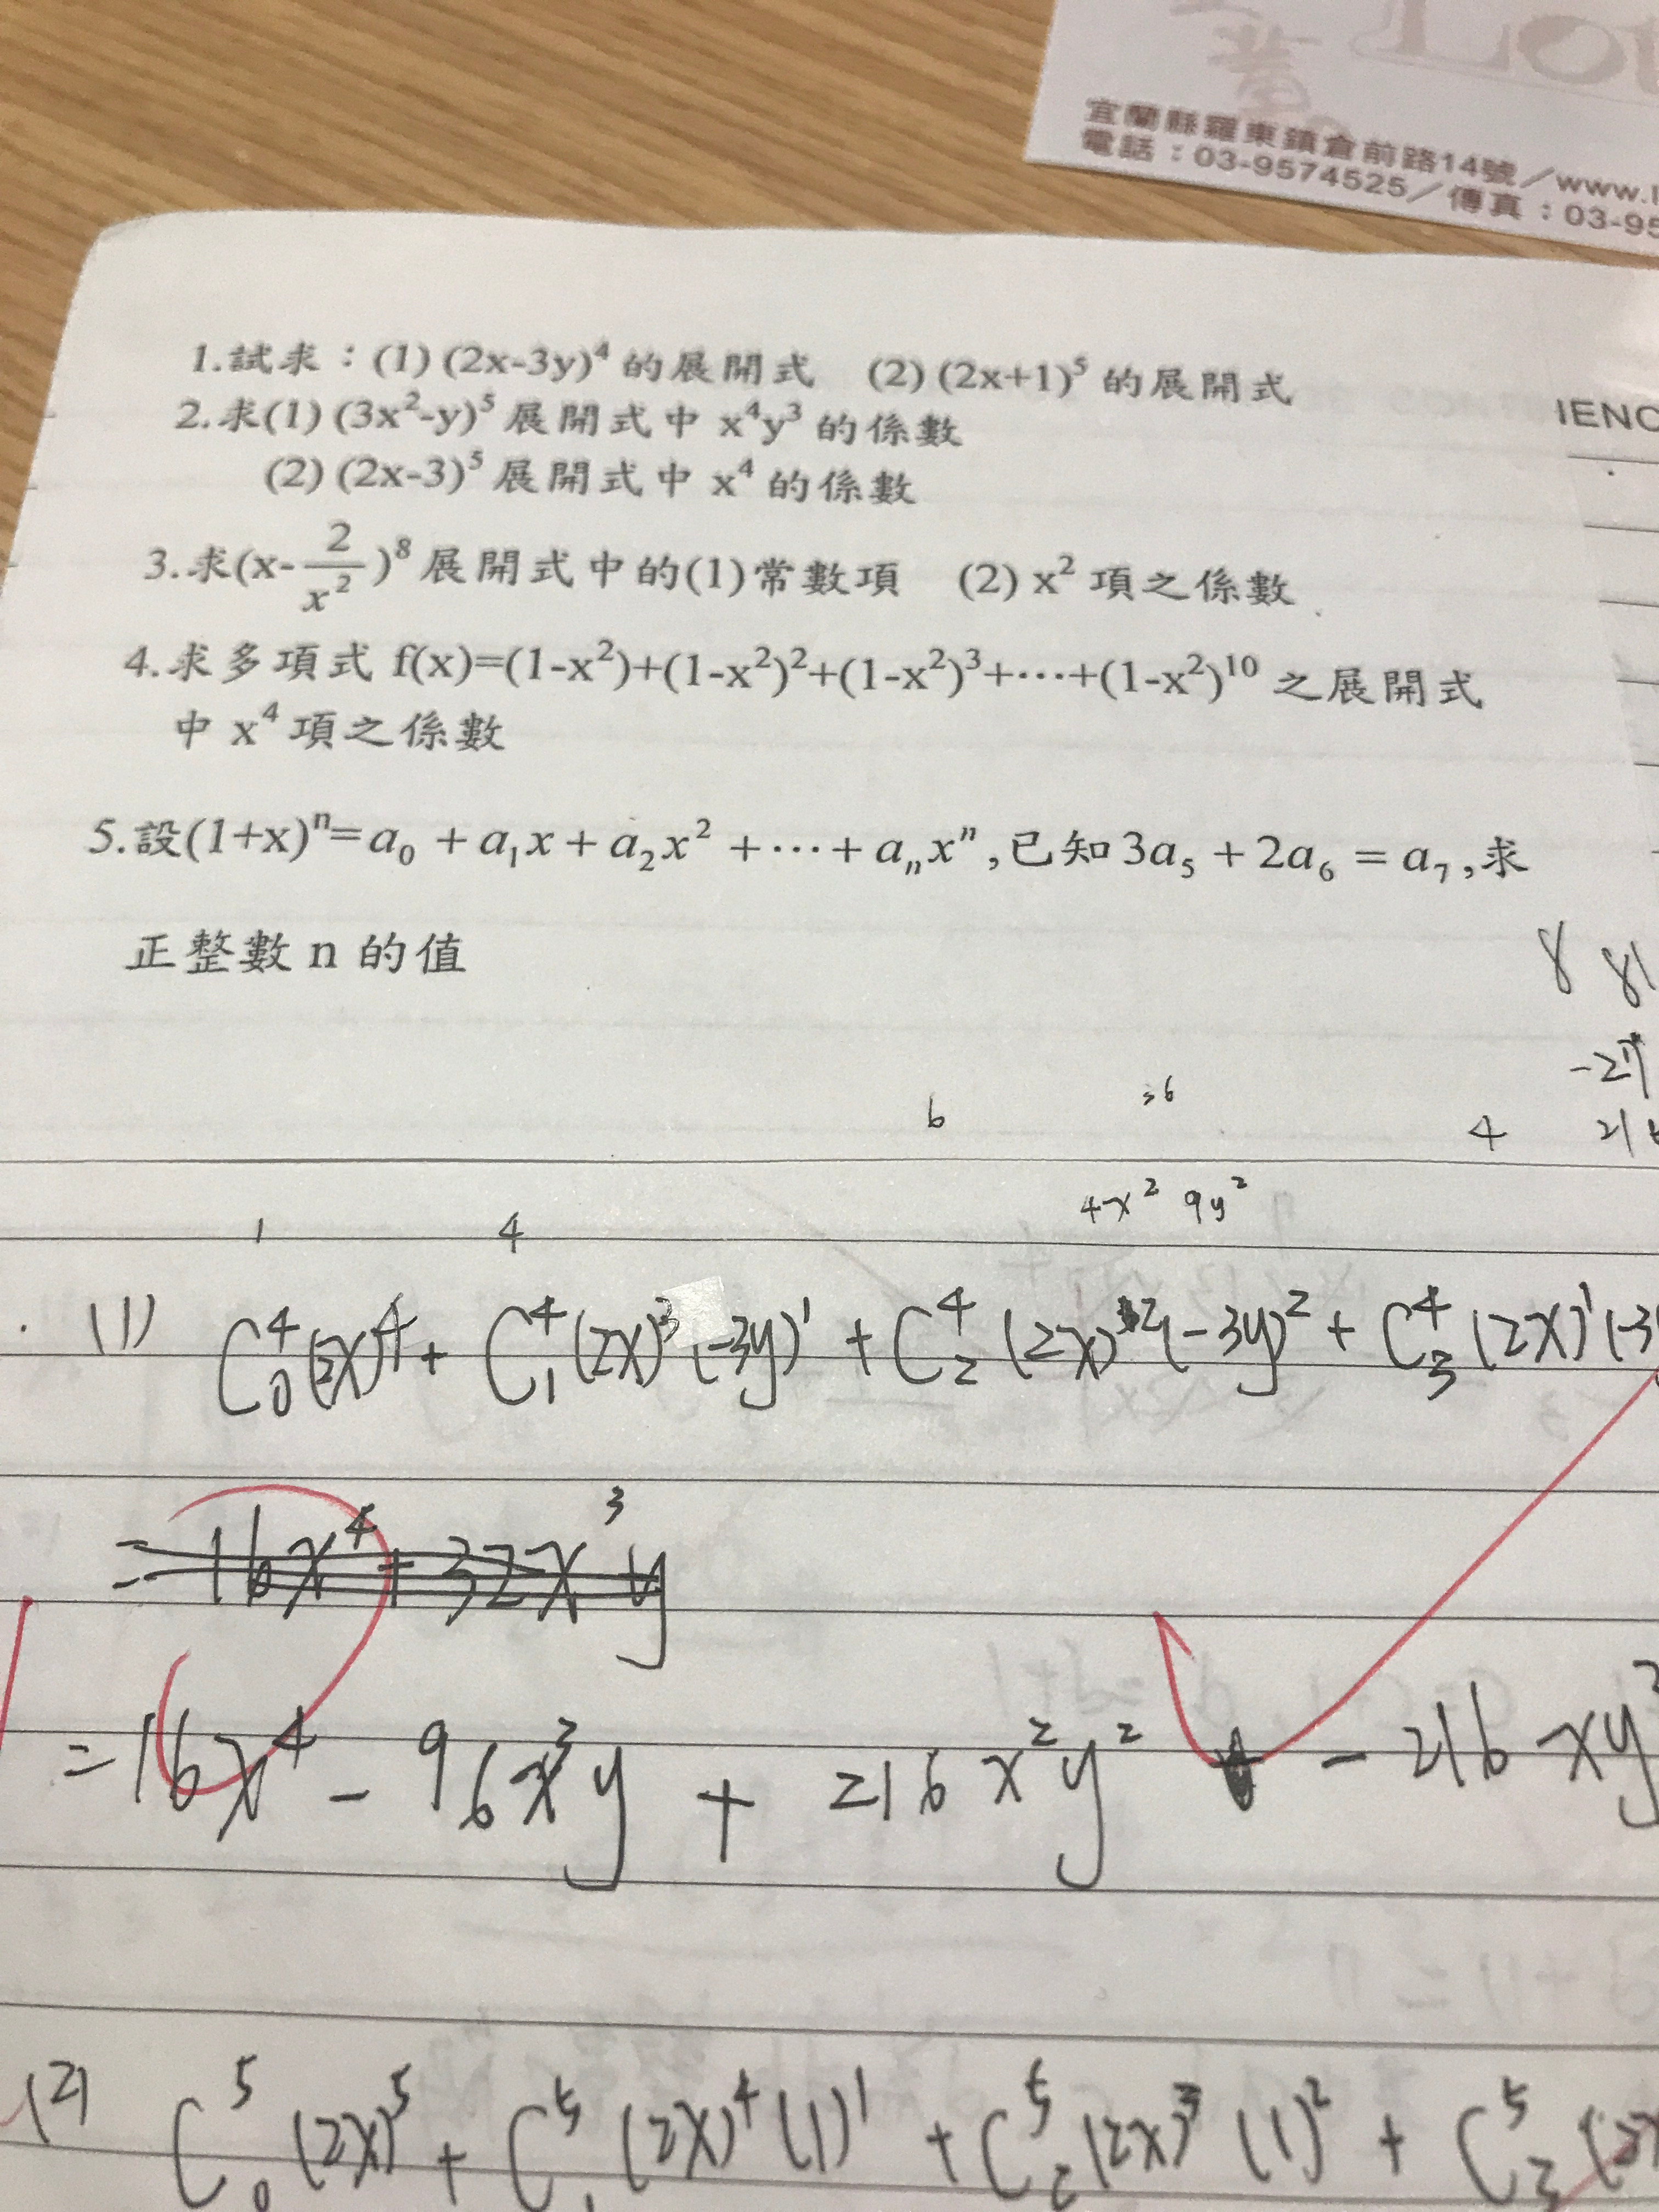 宜蘭縣羅東鎮倉前路14號／www.l
電話：03-9574525／傳真：03-95
IENC
1.試求：(1) (2x-3y)⁴ 的展開式 (2) (2x+1)⁵ 的展開式
2.求(1) (3x²-y)⁵ 展開式中 x⁴y³ 的係數
(2) (2x-3)⁵ 展開式中 x⁴ 的係數
3.求(x-2/x²)⁸ 展開式中的(1)常數項 (2) x² 項之係數
4.求多項式 f(x)=(1-x²)+(1-x²)²+(1-x²)³+⋯+(1-x²)¹⁰ 之展開式
中 x⁴ 項之係數
5.設(1+x)ⁿ=a₀ + a₁x + a₂x² + ⋯ + aₙxⁿ,已知 3a₅ + 2a₆ = a₇,求
正整數 n 的值
8 81
-27
6 36 4 216
4x² 9y²
1 4
(1) C⁴₀(2x)⁴ + C⁴₁(2x)³(-3y)¹ + C⁴₂(2x)²(-3y)² + C⁴₃(2x)¹(-3y
= 16x⁴ + 32x³y
= 16x⁴ - 96x³y + 216x²y² - 216xy³
(2) C⁵₀(2x)⁵ + C⁵₁(2x)⁴(1)¹ + C⁵₂(2x)³(1)² + C⁵₃(2x